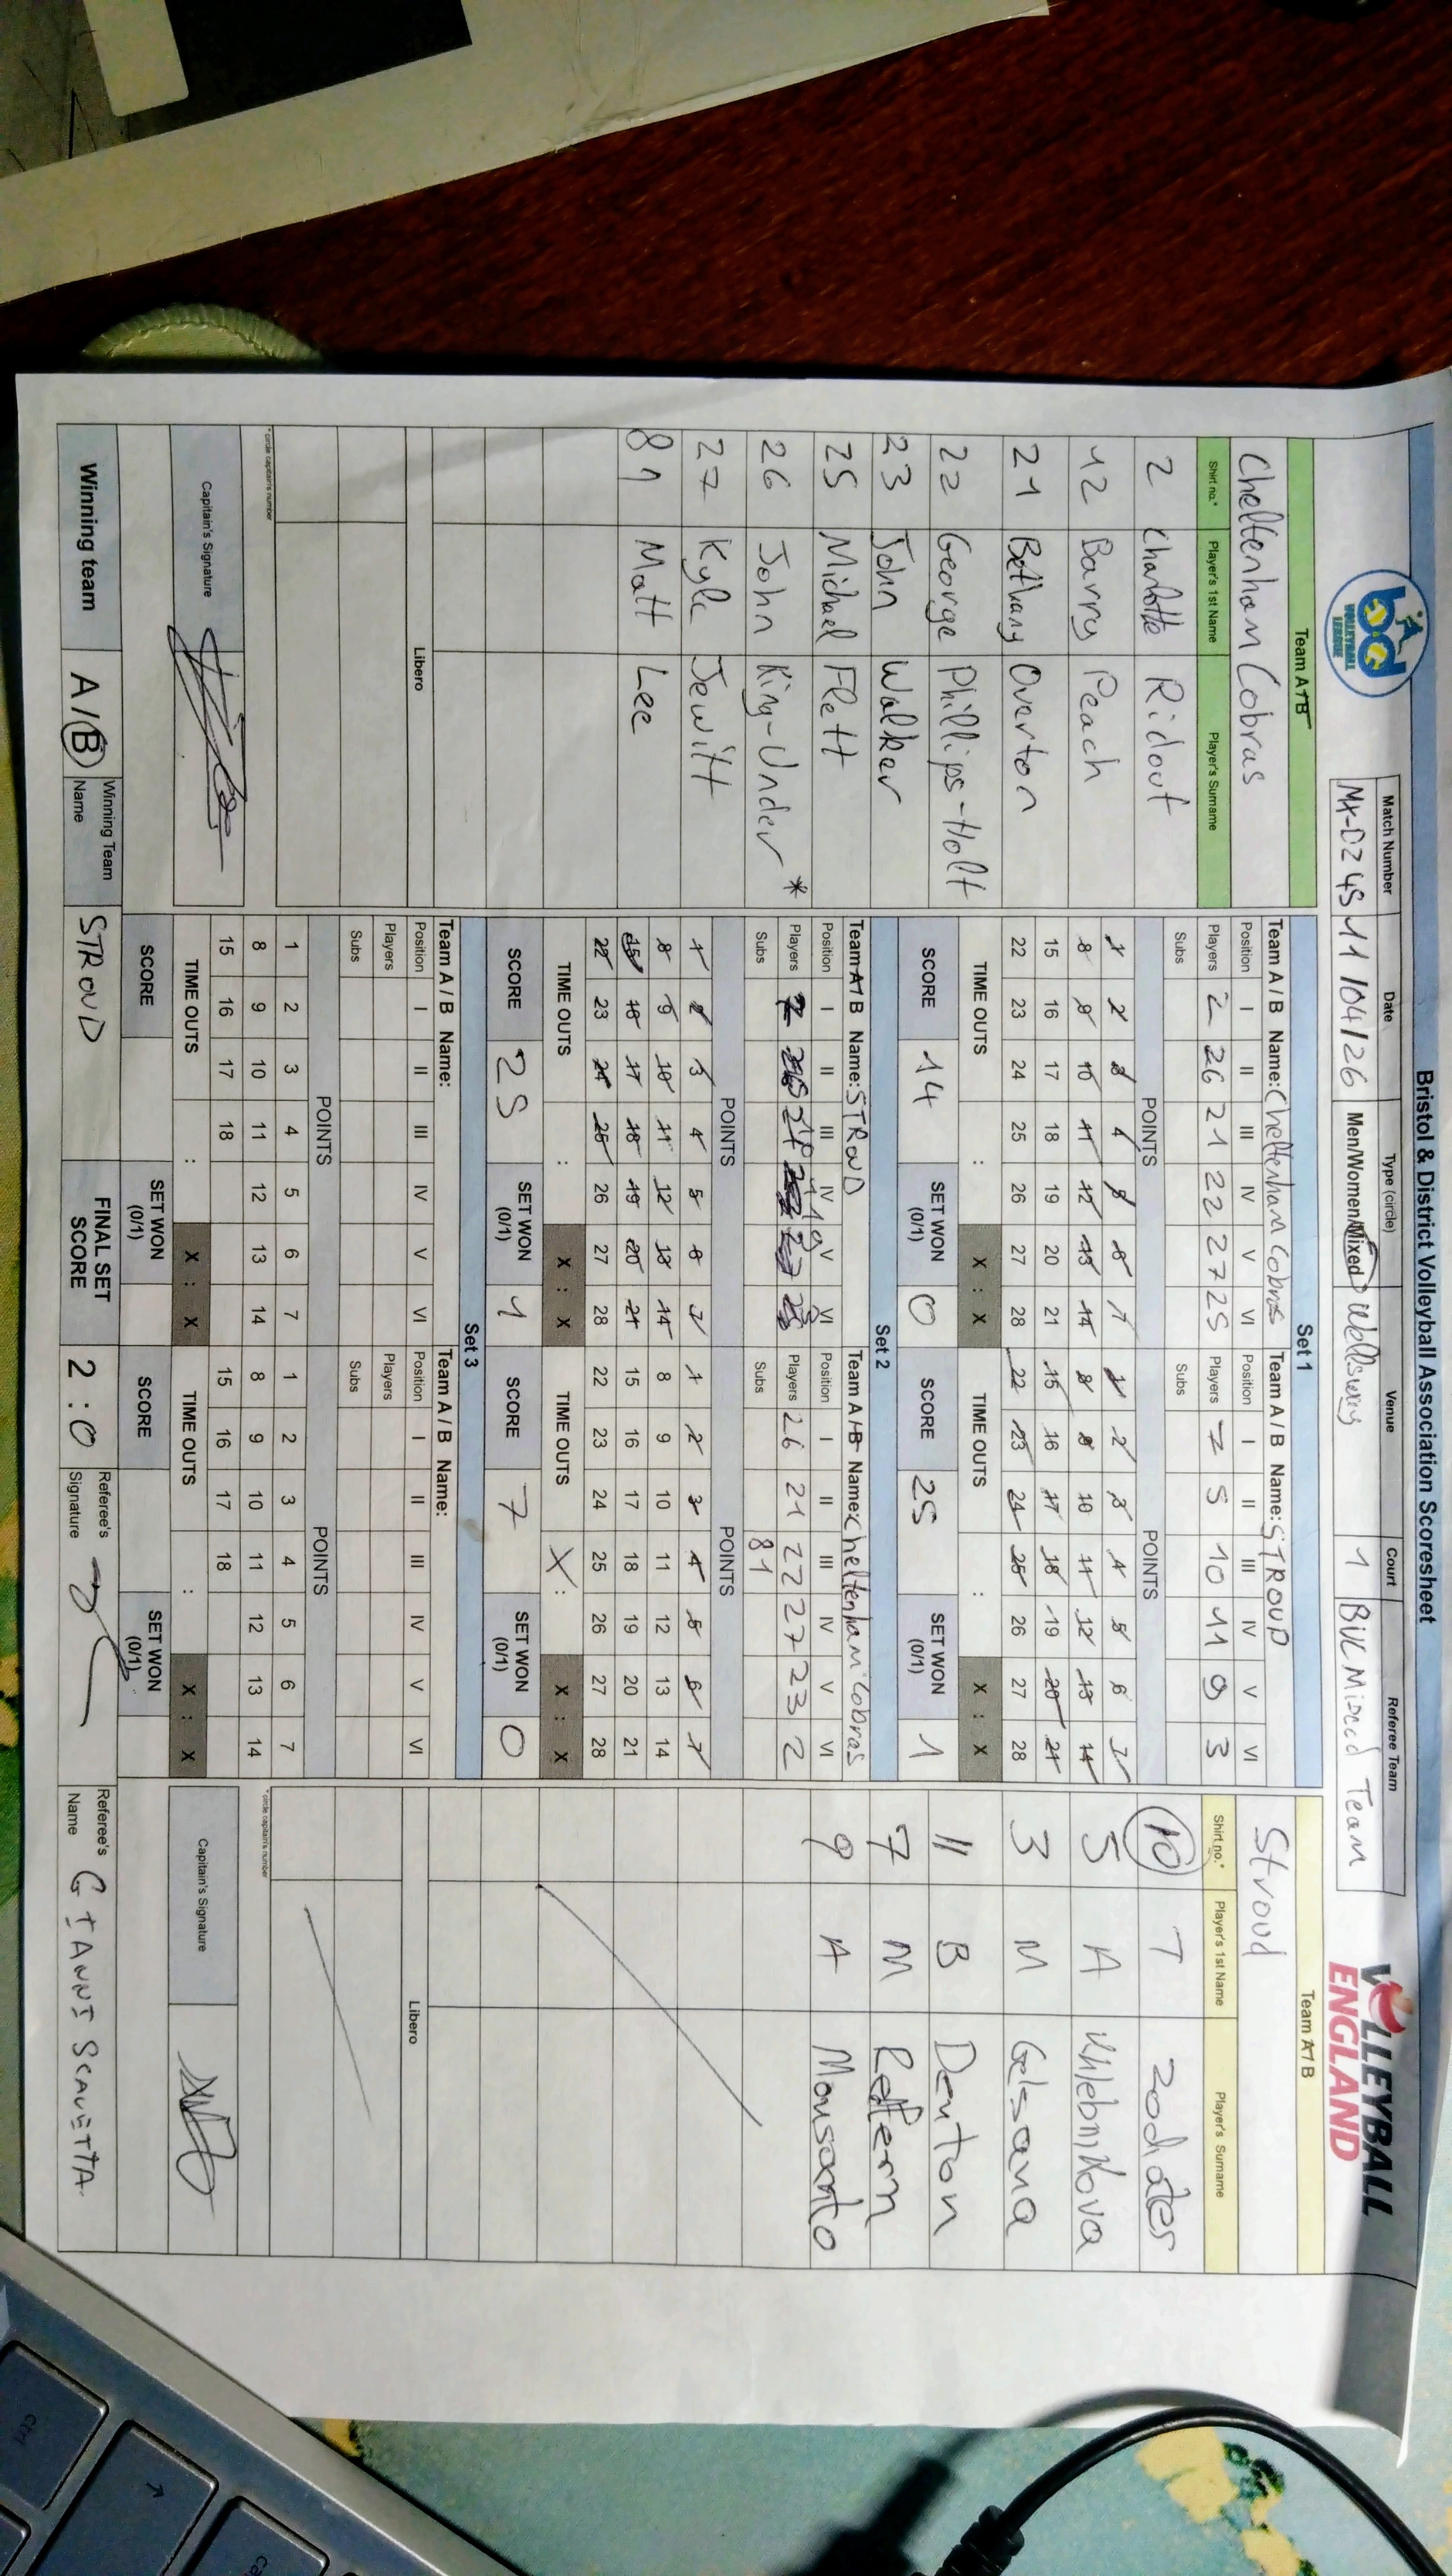 Bristol & District Volleyball Association Scoresheet
bd VOLLEYBALL LEAGUE
Match Number Date Type (circle) Venue Court Referee Team
MX-D2 45 11/04/26 Men/Women/Mixed Wellsway 1 BVC Mixed Team
VOLLEYBALL ENGLAND
Team A / B
Cheltenham Cobras
Shirt no.* Player's 1st Name Player's Surname
2 Charlotte Ridout
12 Barry Peach
21 Bethany Overton
22 George Phillips-Holt
23 John Walker
25 Michael Flett
26 John King-Under *
27 Kyle Jewitt
81 Matt Lee
Libero
* circle captain's number
Capitain's Signature
Set 1
Team A / B Name: Cheltenham Cobras
Position I II III IV V VI
Players 2 26 21 22 27 25
Subs
POINTS
1 2 3 4 5 6 7
8 9 10 11 12 13 14
15 16 17 18 19 20 21
22 23 24 25 26 27 28
TIME OUTS : X : X
SCORE 14 SET WON (0/1) 0
Team A / B Name: STROUD
Position I II III IV V VI
Players 7 5 10 11 9 3
Subs
POINTS
1 2 3 4 5 6 7
8 9 10 11 12 13 14
15 16 17 18 19 20 21
22 23 24 25 26 27 28
TIME OUTS : X : X
SCORE 25 SET WON (0/1) 1
Set 2
Team A / B Name: STROUD
Position I II III IV V VI
Players
Subs
POINTS
1 2 3 4 5 6 7
8 9 10 11 12 13 14
15 16 17 18 19 20 21
22 23 24 25 26 27 28
TIME OUTS : X : X
SCORE 25 SET WON (0/1) 1
Team A / B Name: Cheltenham Cobras
Position I II III IV V VI
Players 26 21 22 27 23 2
Subs 81
POINTS
1 2 3 4 5 6 7
8 9 10 11 12 13 14
15 16 17 18 19 20 21
22 23 24 25 26 27 28
TIME OUTS X : X : X
SCORE 7 SET WON (0/1) 0
Set 3
Team A / B Name:
Position I II III IV V VI
Players
Subs
POINTS
1 2 3 4 5 6 7
8 9 10 11 12 13 14
15 16 17 18
TIME OUTS : X : X
SCORE SET WON (0/1)
Team A / B Name:
Position I II III IV V VI
Players
Subs
POINTS
1 2 3 4 5 6 7
8 9 10 11 12 13 14
15 16 17 18
TIME OUTS : X : X
SCORE SET WON (0/1)
Team A / B
Stroud
Shirt no.* Player's 1st Name Player's Surname
10 T Zodiates
5 A Khlebnikova
3 M Gelsana
11 B Denton
7 M Redfern
9 A Monsanto
Libero
* circle captain's number
Capitain's Signature
Winning team A / B Winning Team Name STROUD FINAL SET SCORE 2 : 0 Referee's Signature Referee's Name GIANNI SCAVETTA